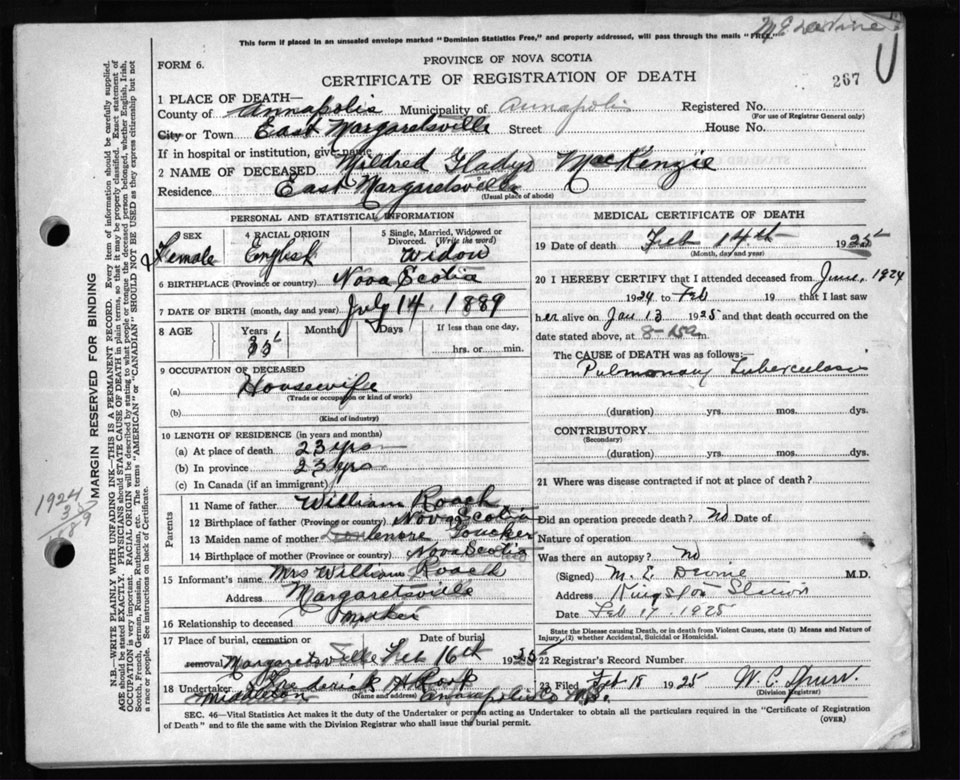 This form if placed in an unsealed envelope marked "Dominion Statistics Free," and properly addressed, will pass through the mails "FREE."
FORM 6.
PROVINCE OF NOVA SCOTIA
CERTIFICATE OF REGISTRATION OF DEATH
267
1 PLACE OF DEATH—
County of Annapolis Municipality of Annapolis Registered No.
(For use of Registrar General only)
City or Town East Margaretsville Street House No.
If in hospital or institution, give name
2 NAME OF DECEASED Mildred Gladys MacKenzie
Residence East Margaretsville
(Usual place of abode)
PERSONAL AND STATISTICAL INFORMATION
3 SEX 4 RACIAL ORIGIN 5 Single, Married, Widowed or Divorced. (Write the word)
Female English Widow
6 BIRTHPLACE (Province or country) Nova Scotia
7 DATE OF BIRTH (month, day and year) July 14. 1889
8 AGE Years Months Days If less than one day.
35 hrs. or min.
9 OCCUPATION OF DECEASED
(a) Housewife
(Trade or occupation or kind of work)
(b)
(Kind of industry)
10 LENGTH OF RESIDENCE (in years and months)
(a) At place of death 23 yrs
(b) In province 23 yrs
(c) In Canada (if an immigrant)
Parents
11 Name of father William Roach
12 Birthplace of father (Province or country) Nova Scotia
13 Maiden name of mother Lenore Goucher
14 Birthplace of mother (Province or country) Nova Scotia
15 Informant's name Mrs William Roach
Address Margaretsville
16 Relationship to deceased Mother
17 Place of burial, cremation or removal Date of burial
Margaretsville Feb 16th 1925
18 Undertaker
(Name and address)
Middleton Annapolis N.S.
MEDICAL CERTIFICATE OF DEATH
19 Date of death Feb 14th 1925
(Month, day and year)
20 I HEREBY CERTIFY that I attended deceased from June, 1924
1924 to Feb 19 that I last saw
her alive on Jan 13 1925 and that death occurred on the
date stated above, at 8-15a m.
The CAUSE OF DEATH was as follows:—
Pulmonary Tuberculosis
(duration) yrs. mos. dys.
CONTRIBUTORY
(Secondary)
(duration) yrs. mos. dys.
21 Where was disease contracted if not at place of death?
Did an operation precede death? No Date of
Nature of operation
Was there an autopsy? No
(Signed) M. E. Devine M.D.
Address Kingston Station
Date Feb 17 1925
State the Disease causing Death, or in death from Violent Causes, state (1) Means and Nature of Injury, (2) whether Accidental, Suicidal or Homicidal.
22 Registrar's Record Number
23 Filed Feb 18 1925 W. C. Spurr.
(Division Registrar)
SEC. 46—Vital Statistics Act makes it the duty of the Undertaker or person acting as Undertaker to obtain all the particulars required in the "Certificate of Registration
of Death" and to file the same with the Division Registrar who shall issue the burial permit.
(OVER)
MARGIN RESERVED FOR BINDING
N.B.—WRITE PLAINLY WITH UNFADING INK—THIS IS A PERMANENT RECORD. Every item of information should be carefully supplied.
AGE should be stated EXACTLY. PHYSICIANS should STATE CAUSE OF DEATH in plain terms, so that it may be properly classified. Exact statement of
OCCUPATION is very important. RACIAL ORIGIN will be described by stating to what people or tongue the deceased person belonged, whether English, Irish,
Scotch, French, German, Russian, Ruthenian, etc. The terms "AMERICAN" or "CANADIAN" SHOULD NOT BE USED as they express citizenship but not
a race or people. See instructions on back of Certificate.
1924
35
89